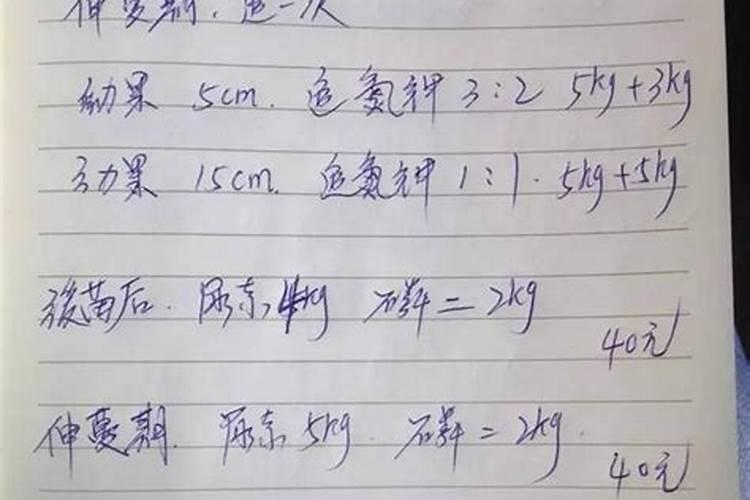 伸蔓期，追一次
幼果 5cm. 追氮钾 3:2 5kg+3kg
幼果 15cm. 追氮钾 1:1. 5kg+5kg
缓苗后. 尿素 4kg 磷二 2kg
40元
伸蔓期. 尿素 5kg. 磷二 2kg.
40元